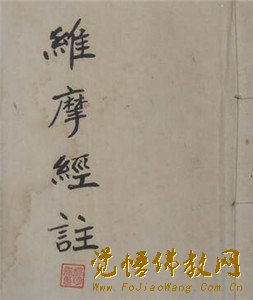 維摩經註
觉悟佛教网
www.FoJiaoWang.Com.Cn